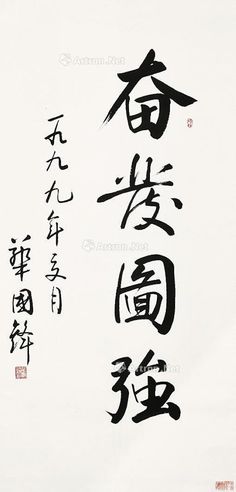 奋發圖強
一九九九年五月
華國鋒
Artron.Net
Artron.Net
Artron.Net
Artron.Net